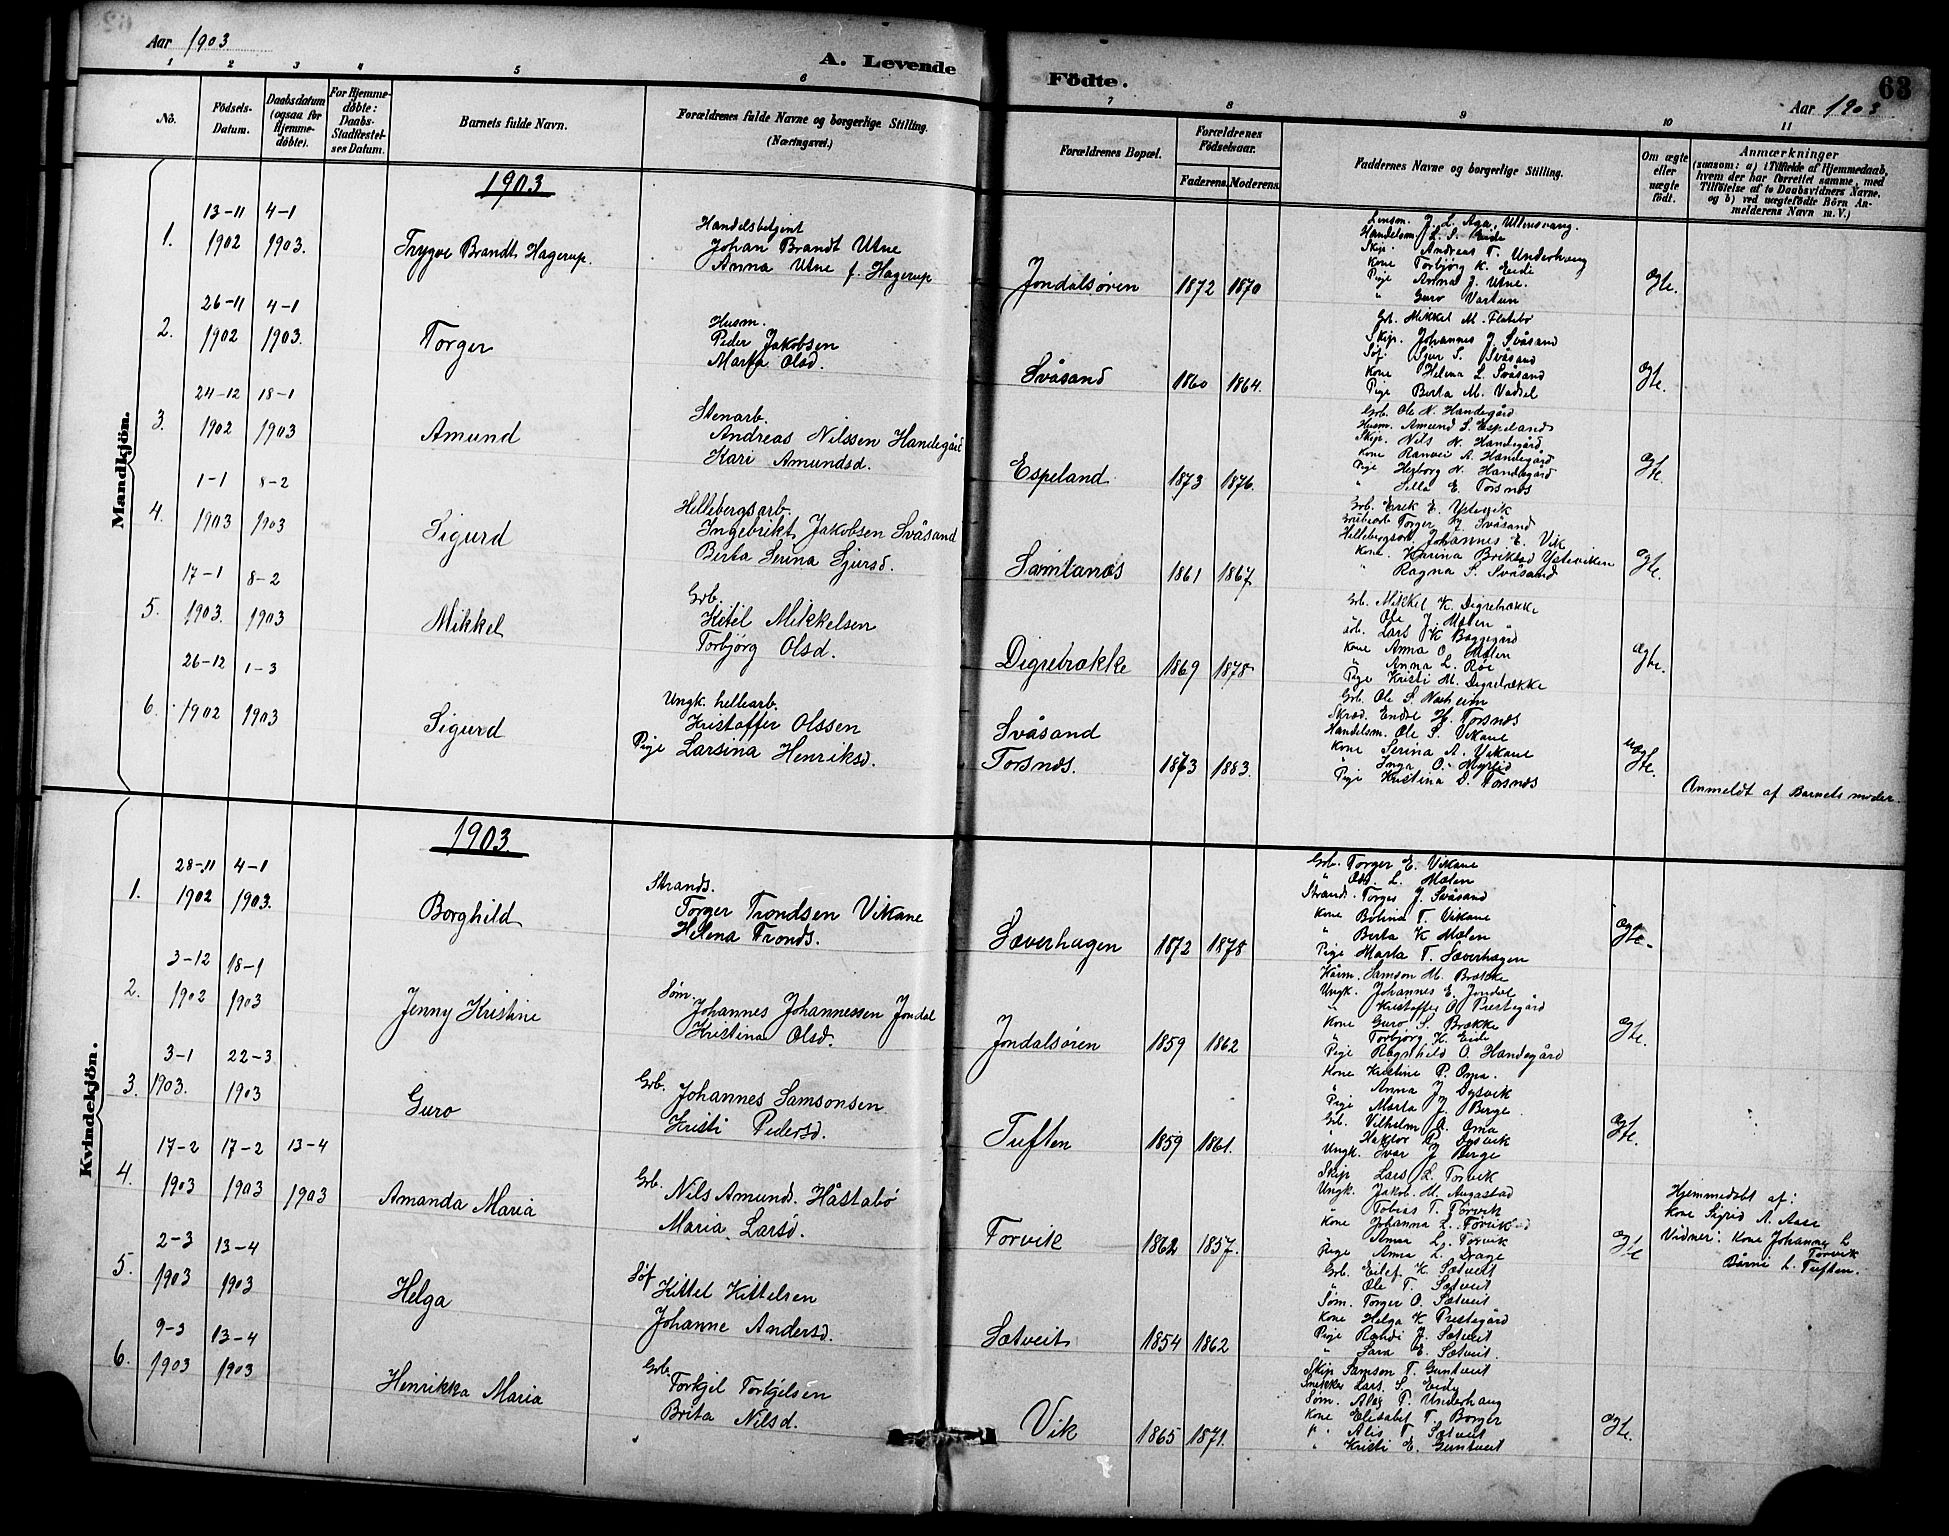 Aar 1903
A. Levende
Födte.
63
Aar 1903
1 2 3 4 5 6 7 8 9 10 11
No.
Födsels-Datum.
Daabsdatum (ogsaa for Hjemmedøbte).
For Hjemmedøbte: Daabs-Stadfæstelses Datum.
Barnets fulde Navn.
Forældrenes fulde Navne og borgerlige Stilling. (Næringsvei.)
Forældrenes Bopæl.
Forældrenes Födselsaar.
Faderens. Moderens.
Faddernes Navne og borgerlige Stilling.
Om ægte eller uægte födt.
Anmærkninger
(saasom: a) i Tilfælde af Hjemmedaab, hvem der har forrettet samme, med Tilföielse af to Daabsvidners Navne, og b) ved uægtefödte Börn Anmelderens Navn m. V.)
Mandkjön.
1903
1.
13-11 1902
4-1 1903.
Trygve Brandt Hagerup.
Handelsbetjent
Johan Brandt Utne
Anna Utne f. Hagerup
Jondalsøren
1872 1870
J. L. Aga, Ullensvang.
Handelsm. L. S. Eide
Skip. Andreas T. Underhaug
Kone Torbjørg K. Eide
Pige Anna J. Utne.
" Guro
Ægte.
2.
26-11 1902
4-1 1903.
Torger
Husm.
Peder Jakobsen
Marta Olsd.
Svåsand
1860 1864.
Grb. Mikkel M. Flatebø
Skip. Johannes J. Svåsand
Søf. Sjur S. Svåsand
Kone Helena L. Svåsand
Pige Berta M.
Ægte.
3.
24-12 1902
18-1 1903
Amund
Stenarb.
Andreas Nilssen Handegård
Kari Amundsd.
Espeland
1873 1876.
Grb. Ole N. Handegård
Husm. Amund S. Espeland
Skip. Nils N. Handegård
Kone Ranvei A. Handegård
Pige Herborg N. Handegård
" Silla E. Torsnes
Ægte.
4.
1-1 1903
8-2 1903
Sigurd
Hellebergsarb.
Ingebrikt Jakobsen Svåsand
Berta Serina Sjursd.
Samlanes
1861 1867.
Grb. Eirik E. Ystevik
Torger J. Svåsand
Hellebergsarb. Johannes E. Vik
Kone Karina Briktsd Ysteviken
" Ragna S. Svåsand
Ægte.
5.
17-1 1903.
8-2 1903
Mikkel
Grb.
Kitel Mikkelsen
Torbjörg Olsd.
Digrebrække
1869 1878
Grb. Mikkel K. Digrebrække
Ole J. Mælen
Grb. Lars K. Byggegård
Kone Anna O. Mælen
" Anna L. Røe
Pige Kristi M. Digrebrække
Ægte.
6.
26-12 1902
1-3 1903
Sigurd
Ungk. hellearb.
Kristoffer Olssen
Pige Larsina Henriksd.
Svåsand
Torsnes.
1873 1883.
Grb. Ole S. Næsheim
Skræd. Endre H. Torsnes
Handelsm. Ole S. Vikane
Kone Serina A. Vikane
" Inga O. Myrlid
Pige Kristina D. Torsnes
Uægte.
Anmeldt af Barnets moder.
Kvindekjön.
1903
1.
28-11 1902
4-1 1903.
Borghild
Strands.
Torger Trondsen Vikane
Helena Tronds.
Sæverhagen
1872 1878
Grb. Torger E. Vikane
" Ole L. Mælen
Strands. Torger J. Svåsand
Kone Bolina T. Vikane
" Berta K. Mælen
Pige Marta T. Sæverhagen
Ægte.
2.
3-12 1902
18-1 1903
Jenny Kristine
Søm.
Johannes Johannessen Jondal
Kristina Olsd.
Jondalsøren
1859 1862
Kårm. Samson M. Brække
Ungk. Johannes E. Jondal
" Kristoffer O. Prestegård
Kone Guro S. Brække
" Torbjörg K. Eide
Pige Ragnhild O. Handegård
Ægte.
3.
3-1 1903.
22-3 1903
Guro
Grb.
Johannes Samsonsen
Kristi Pedersd.
Tuften
1859 1861.
Kone Kristine P. Oma.
" Anna J. Dysvik
Pige Marta J. Berge.
Grb. Vilhelm A. Oma
" Haktor P. Dysvik
Ungk. Ivar J. Berge
Ægte.
4.
17-2 1903
17-2 1903
13-4 1903
Amanda Maria
Grb.
Nils Amunds. Håstabø
Maria Larsd.
Torvik
1862 1857.
Skip Lars L. Torvik
Ungk. Jakob M. Augastad
Tobias T. Torvik
Kone Johanna L. Torvik
" Anna L. Torvik
Pige Anna L. Drage
Ægte
Hjemmedøbt af:
Kone Sigrid A. Aase
Vidner: Kone Johanne L Torvik
Børni L. Tuften.
5.
2-3 1903
13-4 1903
Helga
Søf
Kittel Kittelsen
Johanne Andersd.
Sætveit
1854 1862
Grb. Eilef K. Sætveit
" Ole T. Sætveit
Søm. Torger O. Sætveit
Kone Helga K. Prestegård
Pige Randi J. Sætveit
" Sara E. Sætveit.
6.
9-3 1903
13-4 1903
Henrikka Maria
Grb.
Torkjel Torkjelsen
Brita Nilsd.
Vik
1865 1871.
Skip Samson T. Guntveit
Snekker Lars S. Eide
Søm. Aleg P. Underhaug
Kone Elisabet T. Borger
" Alis T. Sætveit
" Kristi E. Guntveit
Ægte.